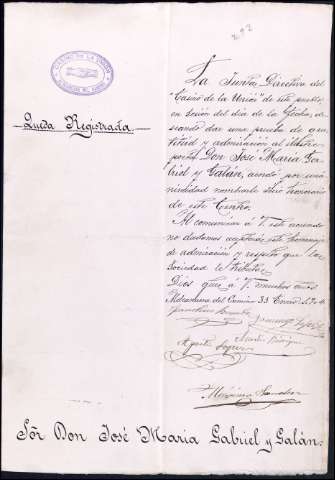 292
CASINO DE LA UNION
Queda Registrada
La Junta Directiva del
"Casino de la Unión" de este pueblo,
en sesión del día de la fecha, de-
seando dar una prueba de gra-
titud y admiración al ilustre
poeta, Don José María Ga-
briel y Galán, acordó por una-
nimidad nombrarle socio honorario
de este Centro.
Al comunicar á V. este acuerdo
no dudamos aceptará este homenaje
de admiración y respeto que la
Sociedad le tributa.
Dios gue á V. muchos años
Aldeanueva del Camino Enero
Agustín
Máximo Sanchez
Sor Don José María Gabriel y Galán.